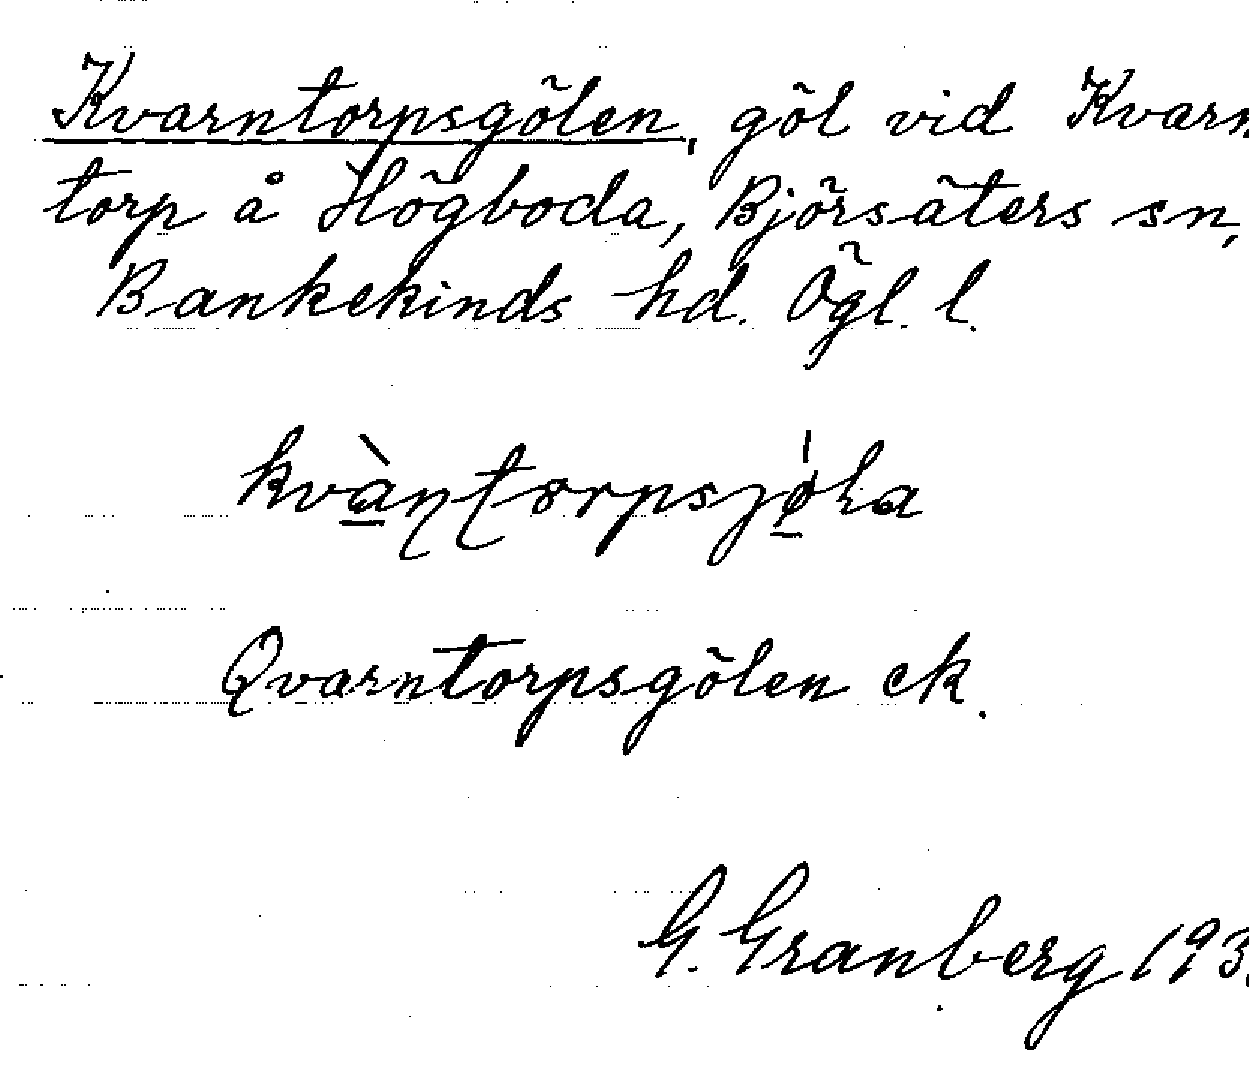 Kvarntorpsgölen, göl vid Kvarn
torp å Högboda, Björsäters sn,
Bankekinds hd. Ögl. l.
kvàṇṭorpsjø̍ła
Qvarntorpsgölen ek.
G. Granberg 193